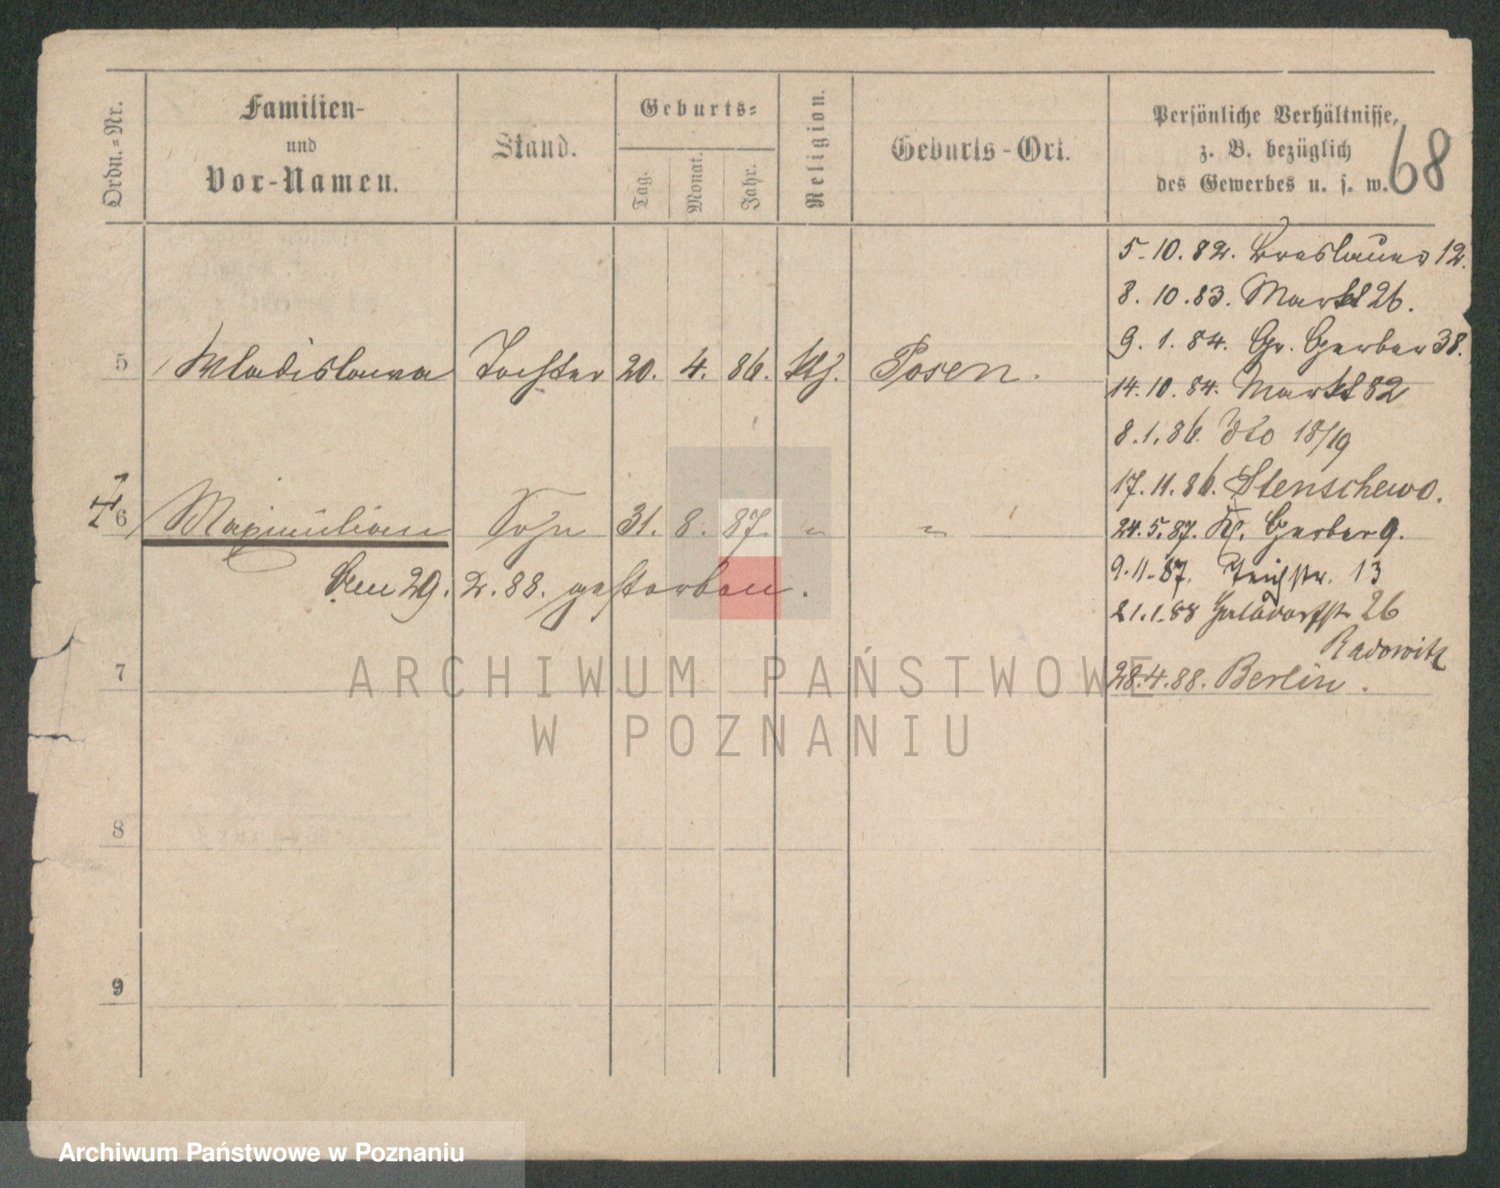 Ordn.-Nr.
Familien-
und
Vor-Namen.
Stand.
Geburts-
Tag.
Monat.
Jahr.
Religion.
Geburts-Ort.
Persönliche Verhältnisse,
z. B. bezüglich
des Gewerbes u. s. w.
68
5 Wladislawa Tochter 20. 4. 86. kth. Posen.
6 Maximilian Sohn 31. 8. 87. " "
Am 29. 2. 88. gestorben.
7
8
9
5.10.82. Breslauer 12.
8.10.83. Markt 26.
9.1.84. Gr. Gerber 38.
14.10.84. Markt 82
8.1.86. dto 18/19
17.11.86. Stenschewo.
24.5.87. Kl. Gerber 9.
9.11.87. Teichstr. 13
21.1.88 Halbdorfstr 26
Radowitz
28.4.88. Berlin.
ARCHIWUM PAŃSTWOWE
W POZNANIU
Archiwum Państwowe w Poznaniu